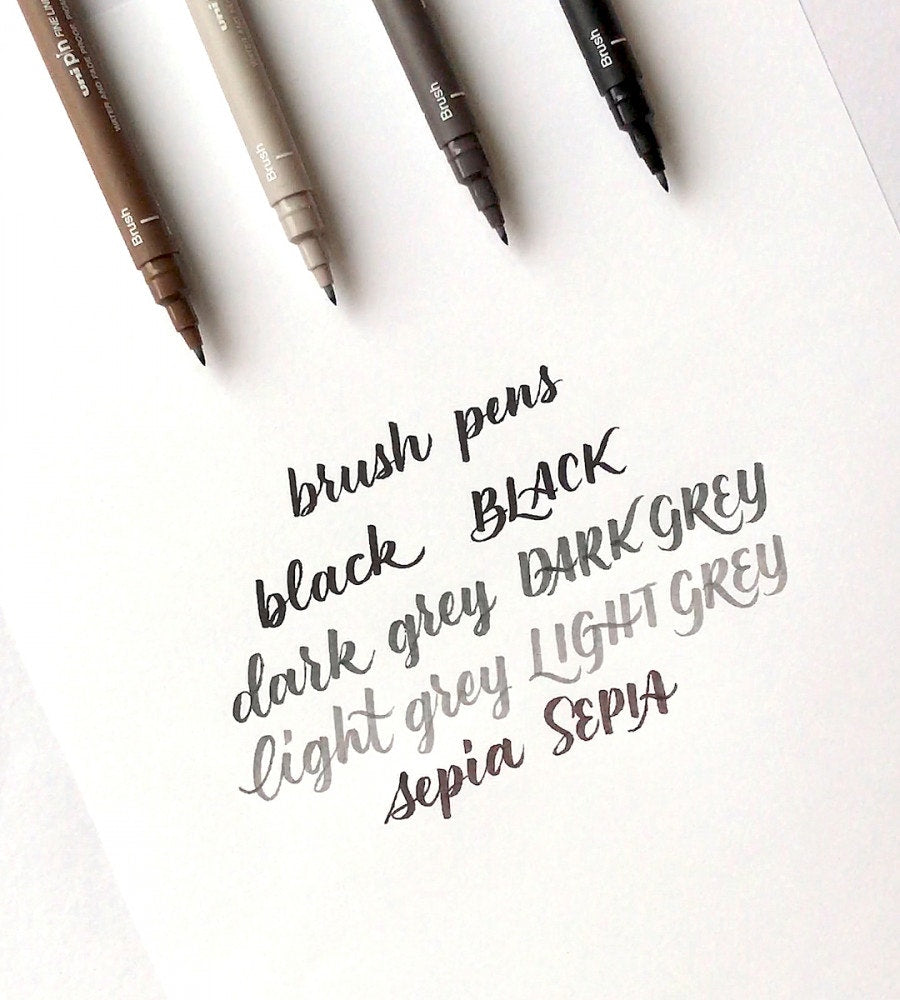 uni pin FINE LINE
WATER AND FADE PROOF PIGME
Brush
uni
Brush
Brush
Brush
brush pens
black BLACK
dark grey DARK GREY
light grey LIGHT GREY
sepia SEPIA